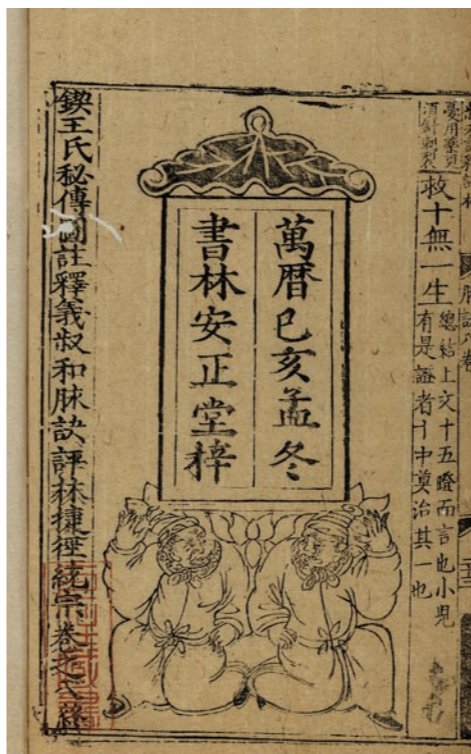 救十無一生
總結上文十五證而言也小兒
有是證者十中莫治其一也
萬暦己亥孟冬
書林安正堂梓
鍥王氏秘傳圖註釋義叔和脉訣評林捷徑統宗卷之八終